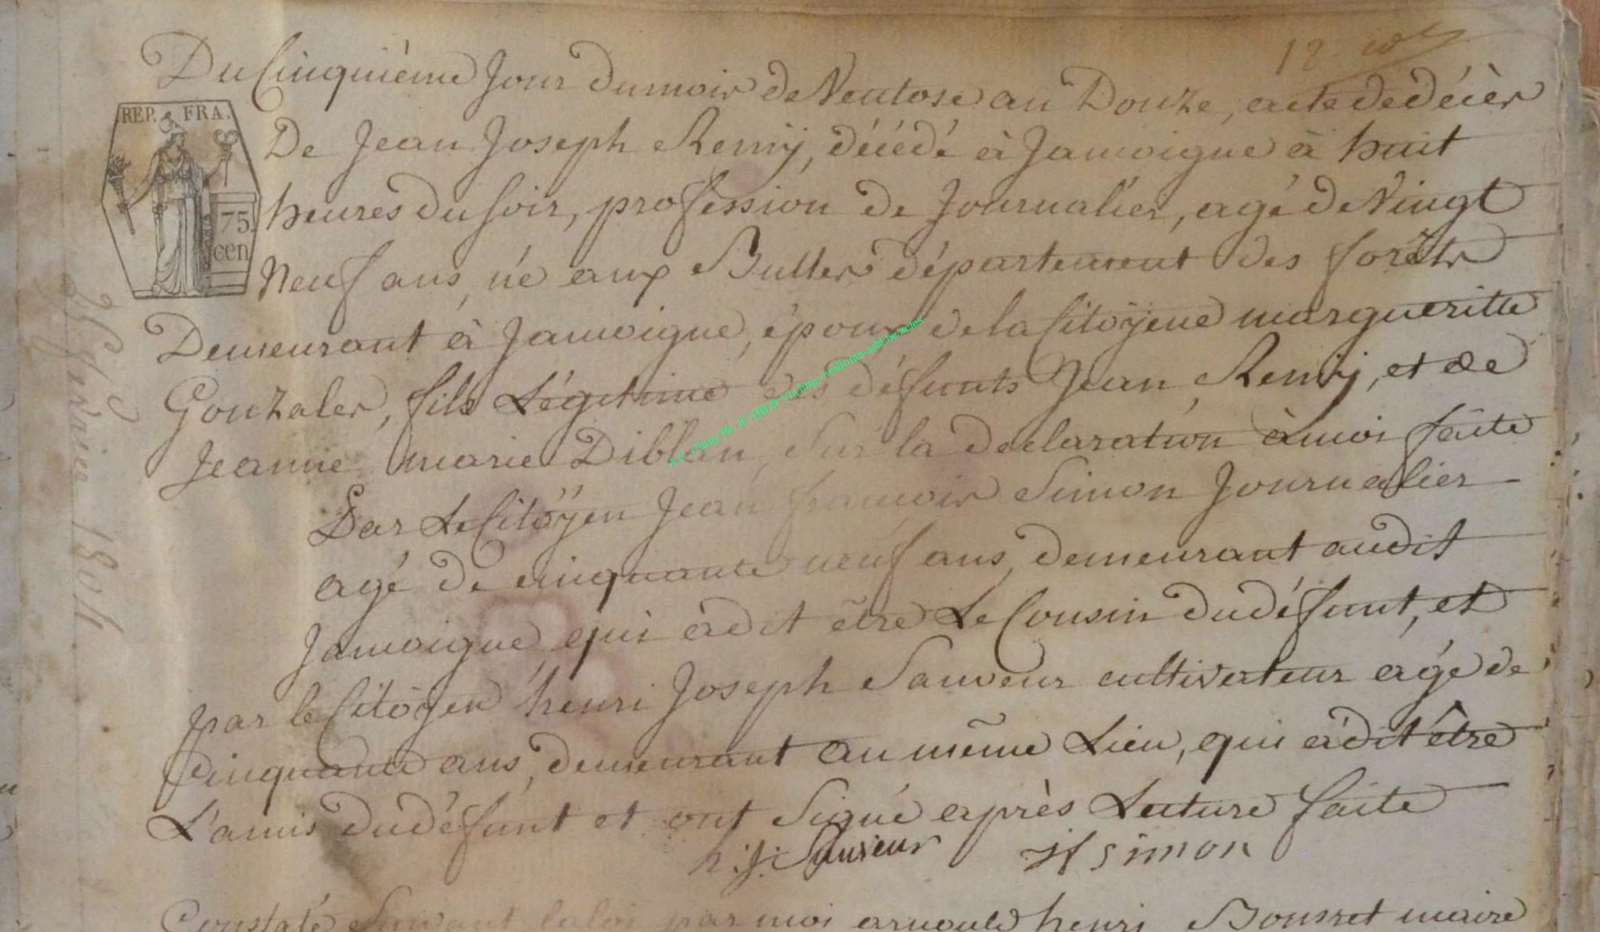 Du Cinquième Jour du mois de Ventose an Douze, acte de décès
REP. FRA.
75
cen
De Jean Joseph Remÿ, décédé à Jamoigne à huit
heures du soir, profession de Journalier, agé de Vingt
Neuf ans, né aux Bulles département des forêts
Demeurant à Jamoigne, époux de la Citoÿene margueritte
Gonzales, fils Légitime des défunts Jean Remÿ, et de
Jeanne marie Diblan, sur la declaration à moi faite
Par Le Citoÿen Jean françois Simon Journalier
agé de cinquante neuf ans, demeurant audit
Jamoigne, qui a dit être Le Cousin du défunt, et
par le Citoÿen henri Joseph Sauveur cultivateur agé de
Cinquante ans, demeurant au même Lieu, qui a dit être
L'amis du défunt et ont Signé après Lecture faite
h. j. Sauveur jf simon
Constaté Suivant la loi par moi arnould henri Bousret maire
25 février 1804